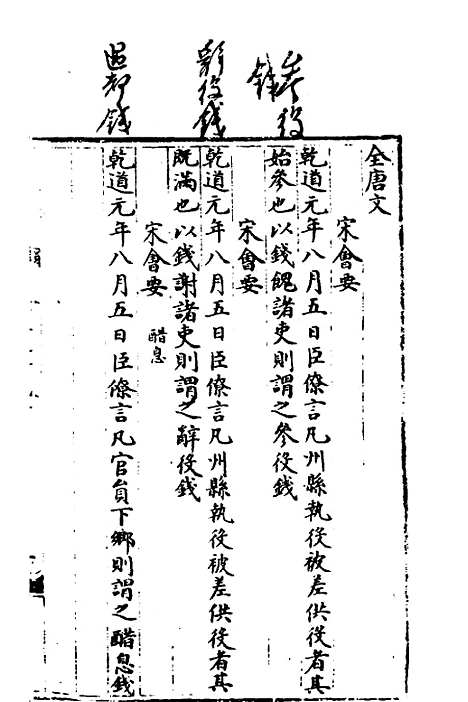 參役
錢
辭役錢
過都錢
全唐文
宋會要
乾道元年八月五日臣僚言凡州縣執役被差供役者其
始參也以錢餽諸吏則謂之參役錢
宋會要
乾道元年八月五日臣僚言凡州縣執役被差供役者其
既滿也以錢謝諸吏則謂之辭役錢
宋會要 醋息
乾道元年八月五日臣僚言凡官員下鄉則謂之醋息錢